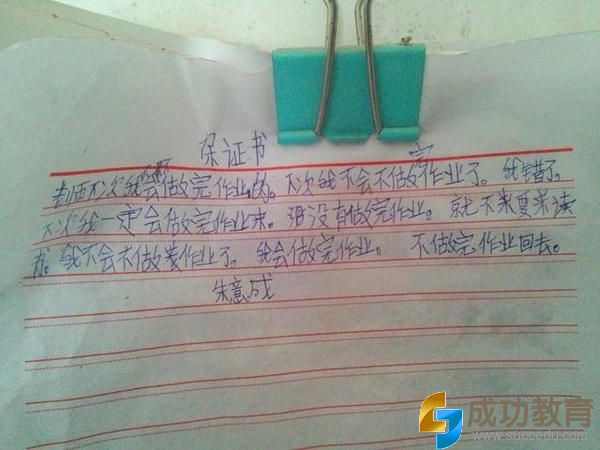 保证书
老师下次我会做完作业的。下次我不会不做完作业了。我错了。
下次我一定会做完作业来。没有做完作业。就不来夏来读
书。我不会不做完作业了。我会做完作业。不做完作业回去。
朱意成
成功教育
www.succedu.com